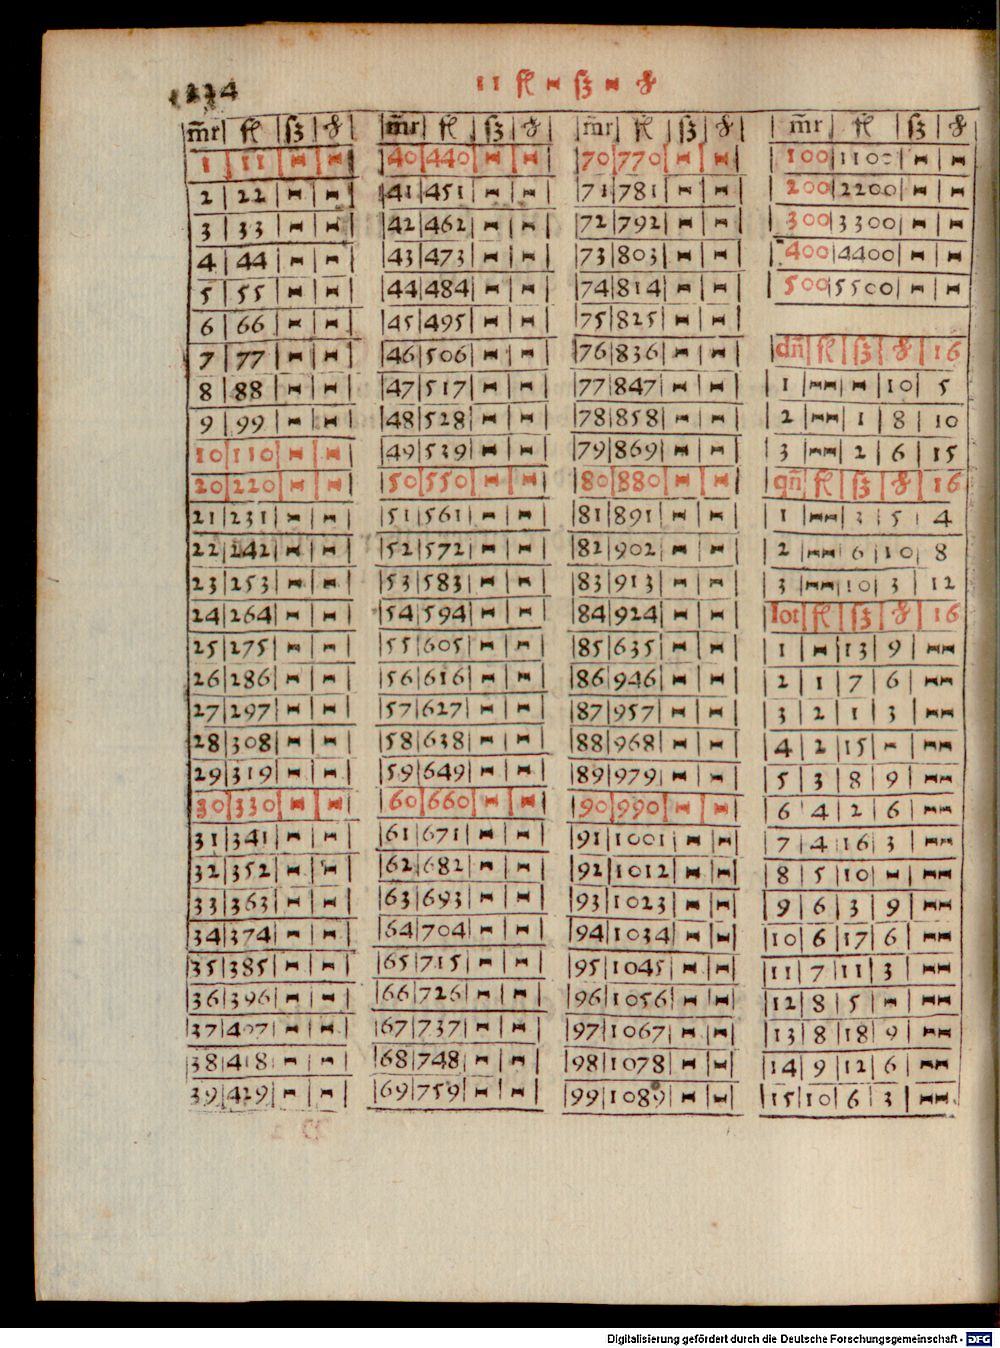 224
11 fl — ß — ₰
m̄r | fl | ß | ₰
1 | 11 | — | —
2 | 22 | — | —
3 | 33 | — | —
4 | 44 | — | —
5 | 55 | — | —
6 | 66 | — | —
7 | 77 | — | —
8 | 88 | — | —
9 | 99 | — | —
10 | 110 | — | —
20 | 220 | — | —
21 | 231 | — | —
22 | 242 | — | —
23 | 253 | — | —
24 | 264 | — | —
25 | 275 | — | —
26 | 286 | — | —
27 | 297 | — | —
28 | 308 | — | —
29 | 319 | — | —
30 | 330 | — | —
31 | 341 | — | —
32 | 352 | — | —
33 | 363 | — | —
34 | 374 | — | —
35 | 385 | — | —
36 | 396 | — | —
37 | 407 | — | —
38 | 418 | — | —
39 | 429 | — | —
m̄r | fl | ß | ₰
40 | 440 | — | —
41 | 451 | — | —
42 | 462 | — | —
43 | 473 | — | —
44 | 484 | — | —
45 | 495 | — | —
46 | 506 | — | —
47 | 517 | — | —
48 | 528 | — | —
49 | 539 | — | —
50 | 550 | — | —
51 | 561 | — | —
52 | 572 | — | —
53 | 583 | — | —
54 | 594 | — | —
55 | 605 | — | —
56 | 616 | — | —
57 | 627 | — | —
58 | 638 | — | —
59 | 649 | — | —
60 | 660 | — | —
61 | 671 | — | —
62 | 682 | — | —
63 | 693 | — | —
64 | 704 | — | —
65 | 715 | — | —
66 | 726 | — | —
67 | 737 | — | —
68 | 748 | — | —
69 | 759 | — | —
m̄r | fl | ß | ₰
70 | 770 | — | —
71 | 781 | — | —
72 | 792 | — | —
73 | 803 | — | —
74 | 814 | — | —
75 | 825 | — | —
76 | 836 | — | —
77 | 847 | — | —
78 | 858 | — | —
79 | 869 | — | —
80 | 880 | — | —
81 | 891 | — | —
82 | 902 | — | —
83 | 913 | — | —
84 | 924 | — | —
85 | 635 | — | —
86 | 946 | — | —
87 | 957 | — | —
88 | 968 | — | —
89 | 979 | — | —
90 | 990 | — | —
91 | 1001 | — | —
92 | 1012 | — | —
93 | 1023 | — | —
94 | 1034 | — | —
95 | 1045 | — | —
96 | 1056 | — | —
97 | 1067 | — | —
98 | 1078 | — | —
99 | 1089 | — | —
m̄r | fl | ß | ₰
100 | 1100 | — | —
200 | 2200 | — | —
300 | 3300 | — | —
400 | 4400 | — | —
500 | 5500 | — | —
dn̄ | fl | ß | ₰ | 16
1 | — | — | 10 | 5
2 | — | 1 | 8 | 10
3 | — | 2 | 6 | 15
qn̄ | fl | ß | ₰ | 16
1 | — | 3 | 5 | 4
2 | — | 6 | 10 | 8
3 | — | 10 | 3 | 12
lot | fl | ß | ₰ | 16
1 | — | 13 | 9 | —
2 | 1 | 7 | 6 | —
3 | 2 | 1 | 3 | —
4 | 2 | 15 | — | —
5 | 3 | 8 | 9 | —
6 | 4 | 2 | 6 | —
7 | 4 | 16 | 3 | —
8 | 5 | 10 | — | —
9 | 6 | 3 | 9 | —
10 | 6 | 17 | 6 | —
11 | 7 | 11 | 3 | —
12 | 8 | 5 | — | —
13 | 8 | 18 | 9 | —
14 | 9 | 12 | 6 | —
15 | 10 | 6 | 3 | —
Digitalisierung gefördert durch die Deutsche Forschungsgemeinschaft - DFG